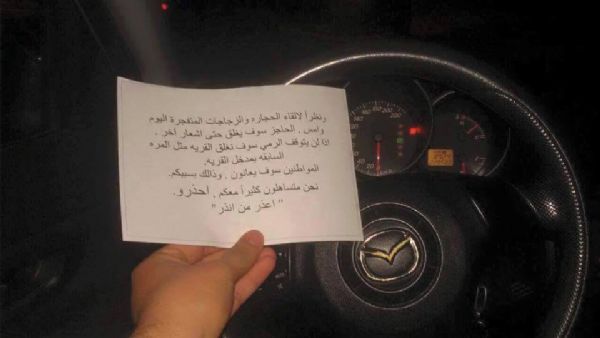 ونظراً لالقاء الحجاره والزجاجات المتفجرة اليوم
وامس . الحاجز سوف يغلق حتى اشعار آخر .
اذا لن يتوقف الرمي سوف نغلق القريه مثل المره
السابقه بمدخل القريه.
المواطنين سوف يعانون . وذالك بسببكم.
نحن متساهلون كثيراً معكم . أحذرو.
" اعذر من انذر"